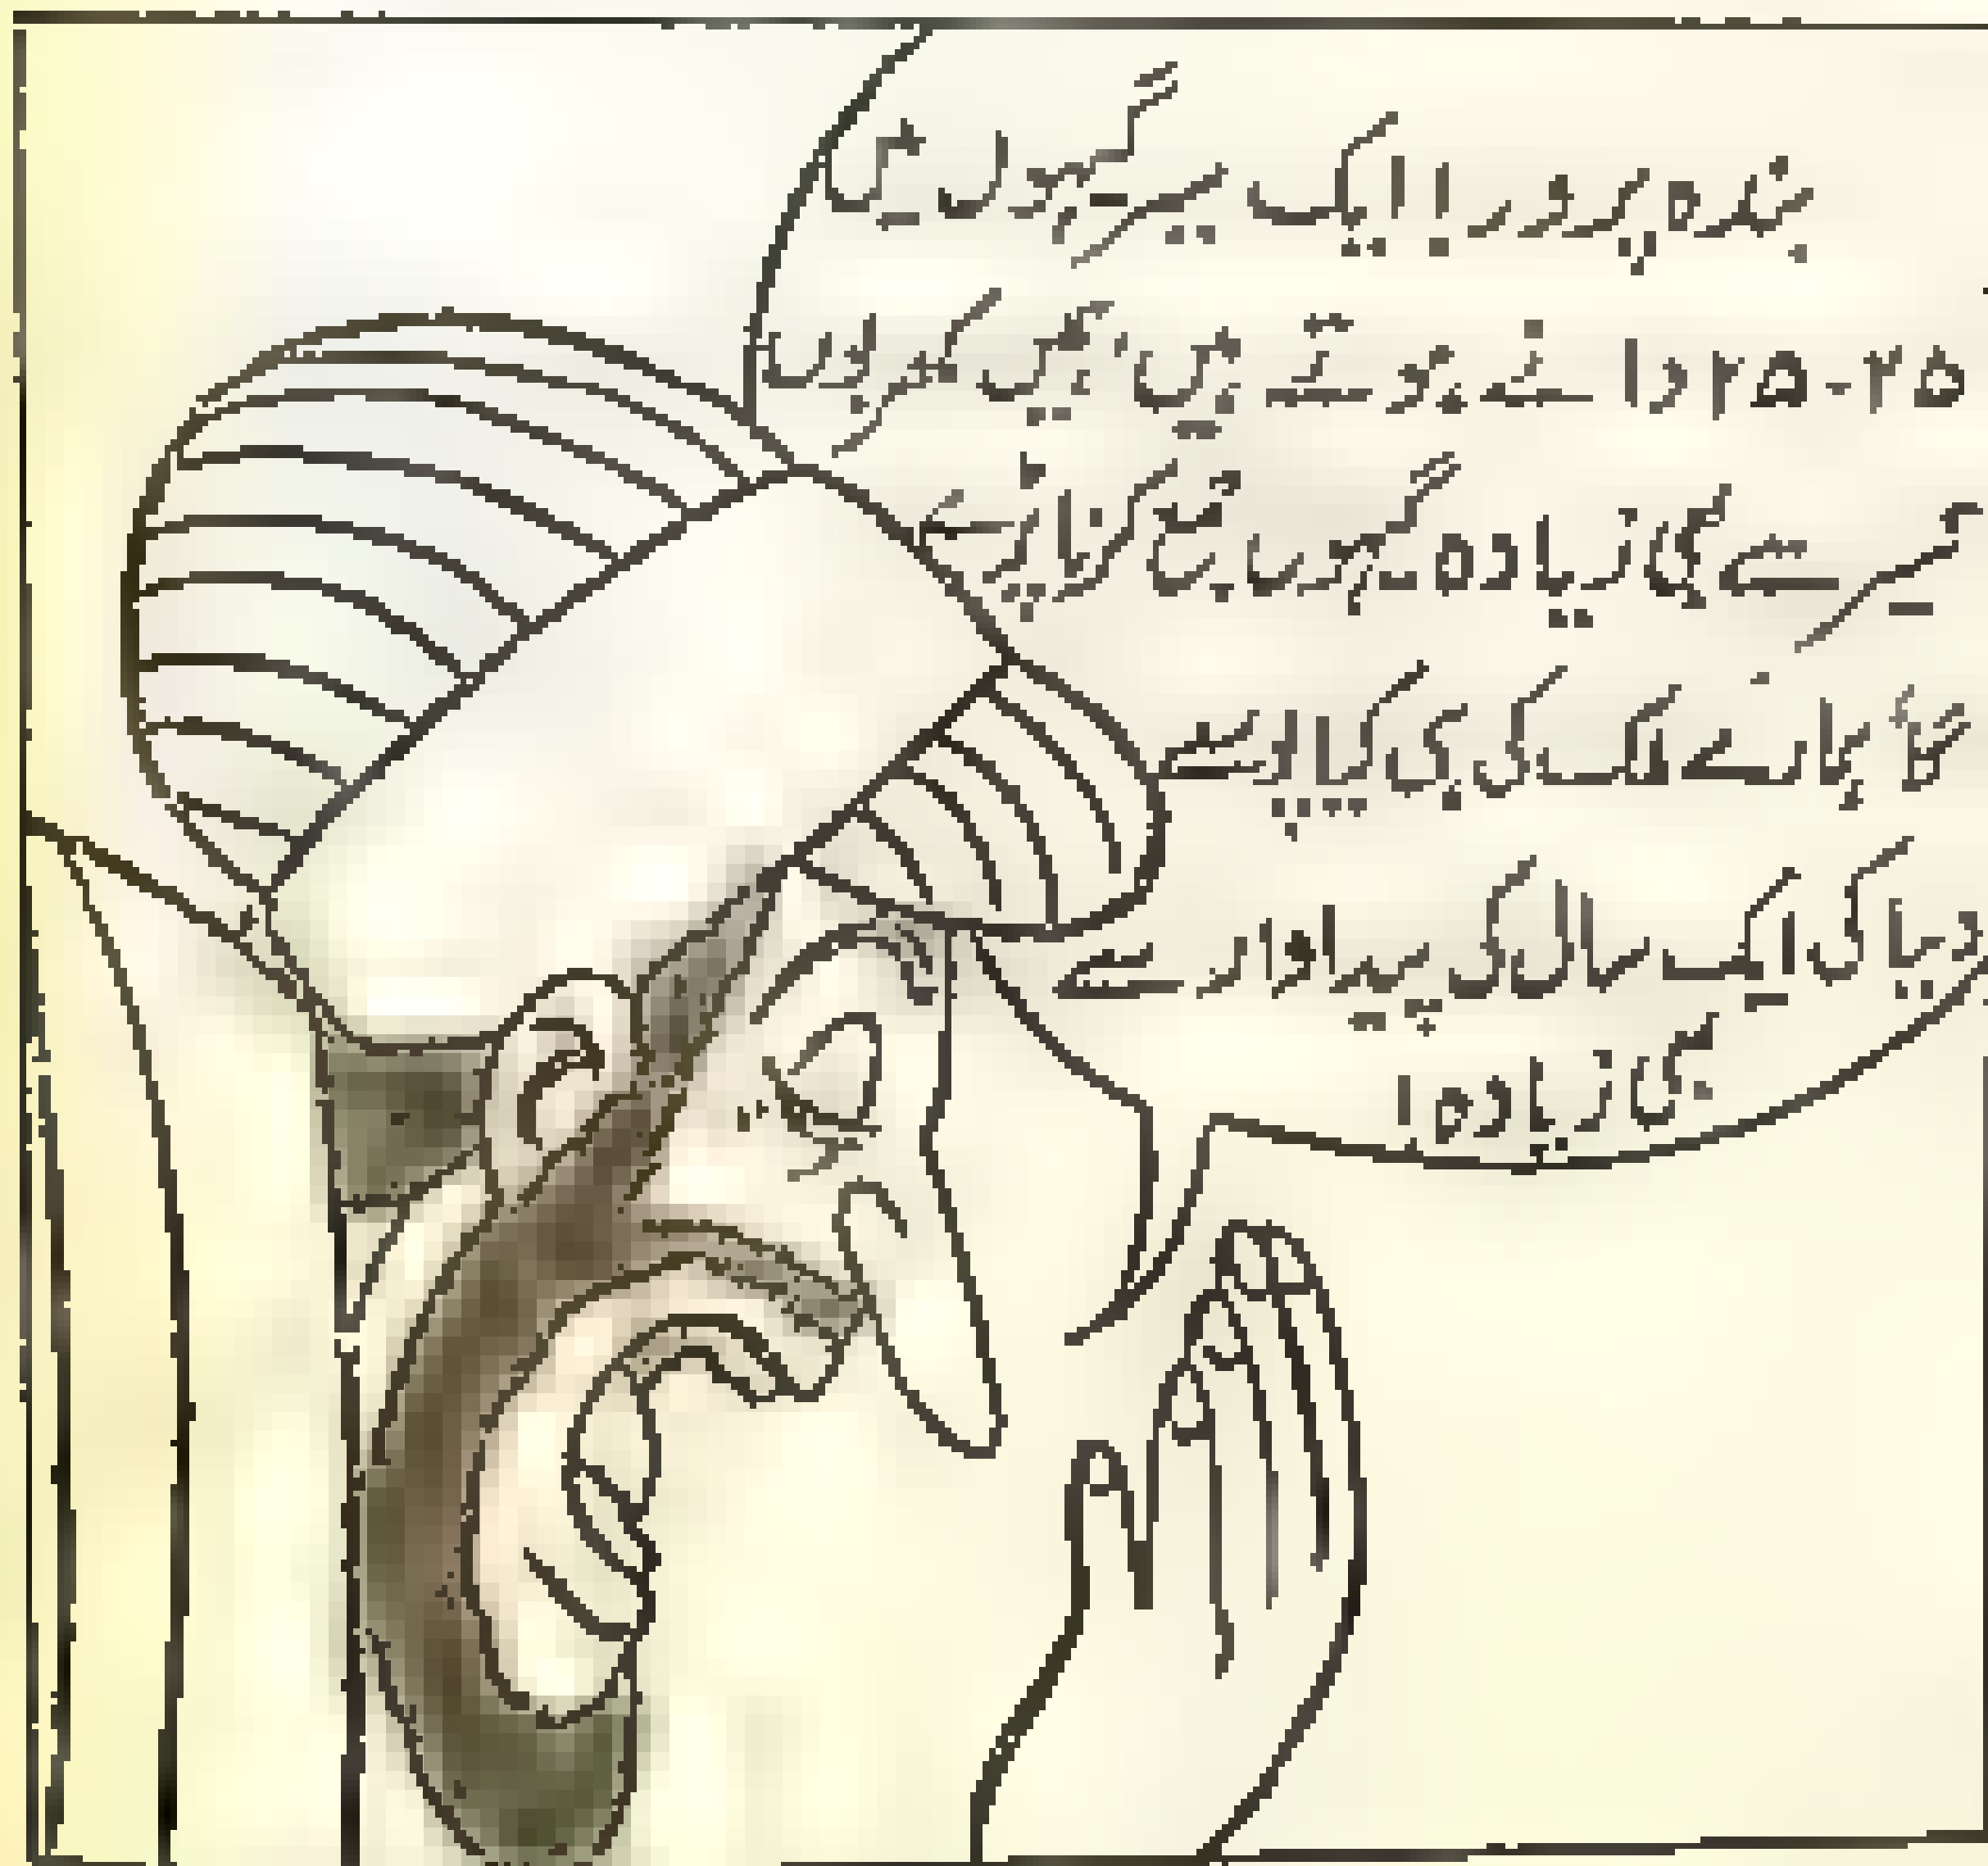 بندہ پرور! ایک سیر گیہوں میں
۲۵-۲۵ دانے ہوتے ہیں، ہمیں کھربوں
سیر سے بھی زیادہ گیہوں جمع کرنا پڑے
گا۔ ہمارے ملک کی ہی کیا پورے
دنیا کی ایک سال کی پیداوار سے
بھی زیادہ!